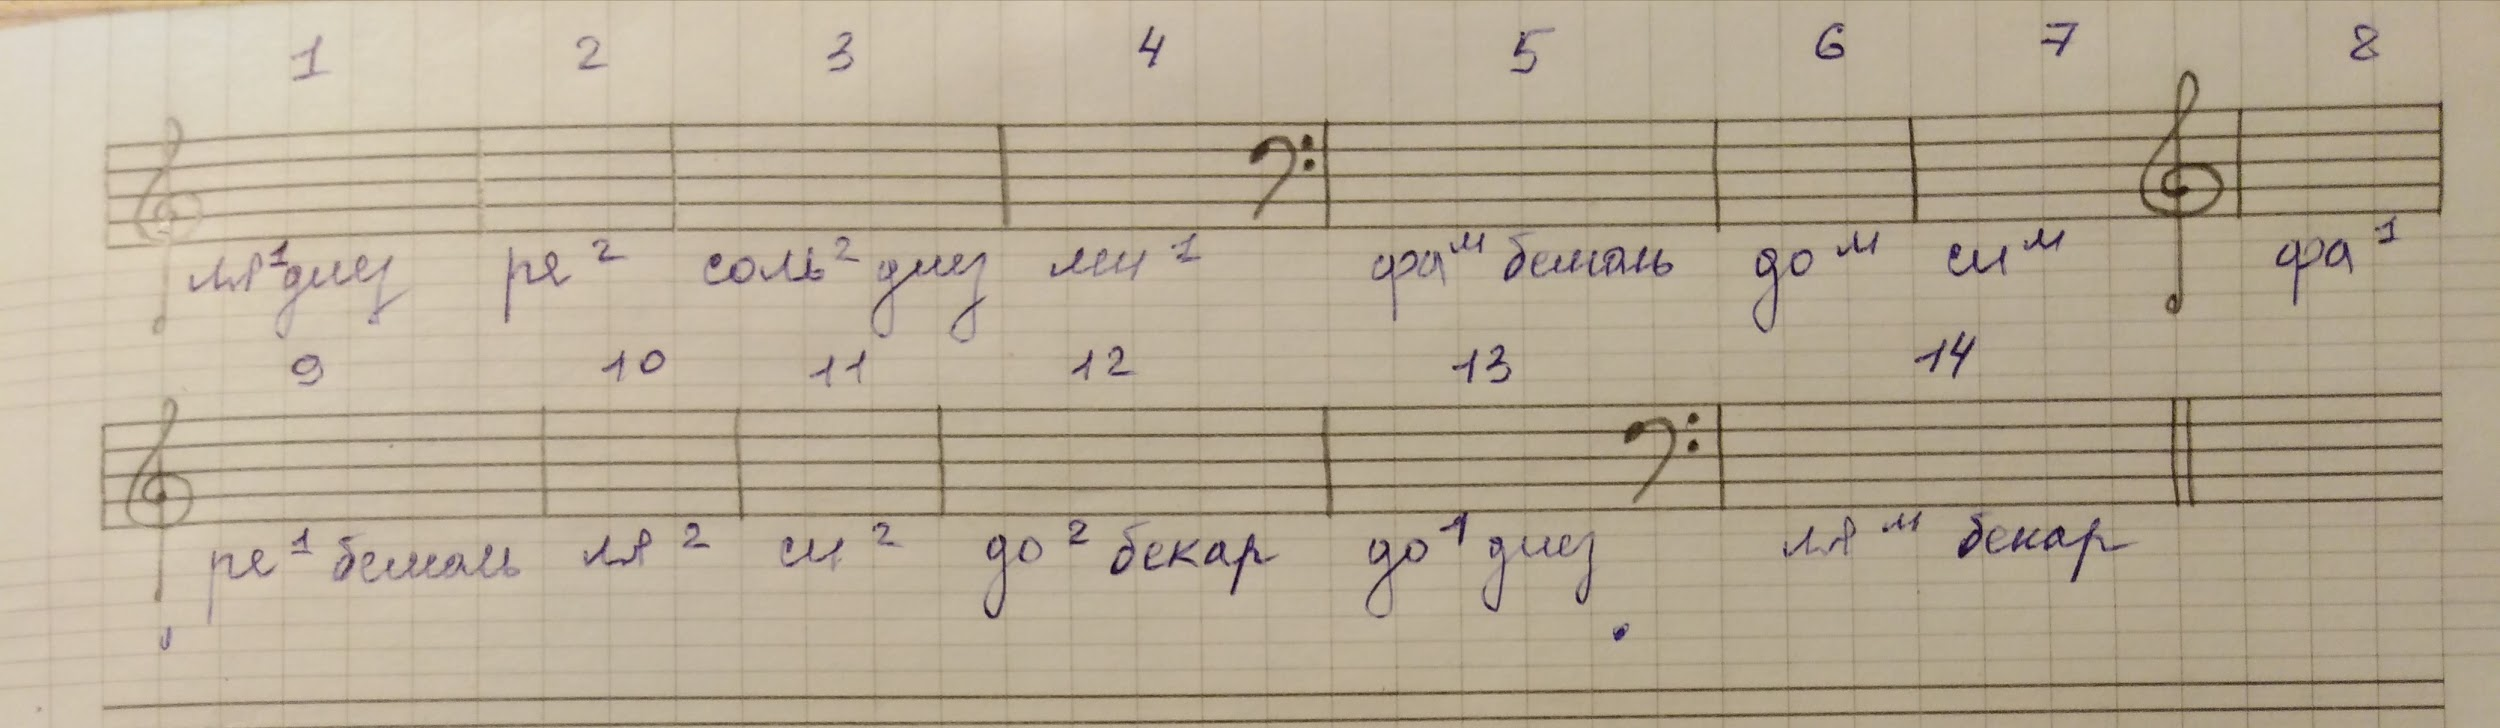 1 2 3 4 5 6 7 8
ля¹диез ре² соль² диез ми¹ фаᴹ бемоль доᴹ сиᴹ фа¹
9 10 11 12 13 14
ре¹ бемоль ля² си² до² бекар до¹ диез ляᴹ бекар